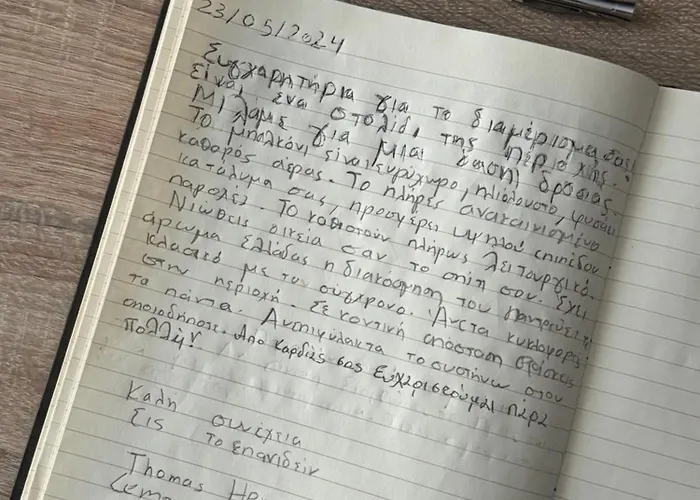 23/05/2024
Συγχαρητήρια για το διαμέρισμα σας!
είναι ένα στολίδι της περιοχής.
Μιλαμε για μιαι όαση δροσιας.
Το μπαλκόνι είναι ευρύχωρο, ηλιόλουστο, φυσαει
καθαρός αέρας. Το πλήρες ανακαινισμένο
κατάλυμα σας, προσφέρει υψηλου επιπέδου
παροχές. Το καθιστούν πλήρως λειτουργικό.
Νιώθεις οικεία σαν το σπίτι σου. Έχει
άρωμα Ελλάδας η διακόσμηση του παντρεύει τ
κλασικό με τον σύγχρονο. Άνετα κυκλοφορείς
στην περιοχή. Σε κοντινή απόσταση βρίσκεις
τα πάντα. Ανεπιφύλακτα το συστήνω στον
οποιοδήποτε. Από καρδιάς σας ευχαριστούμαι πάρα
πολλλή!
Καλη συνέχεια
Εις το επανιδείν
Thomas